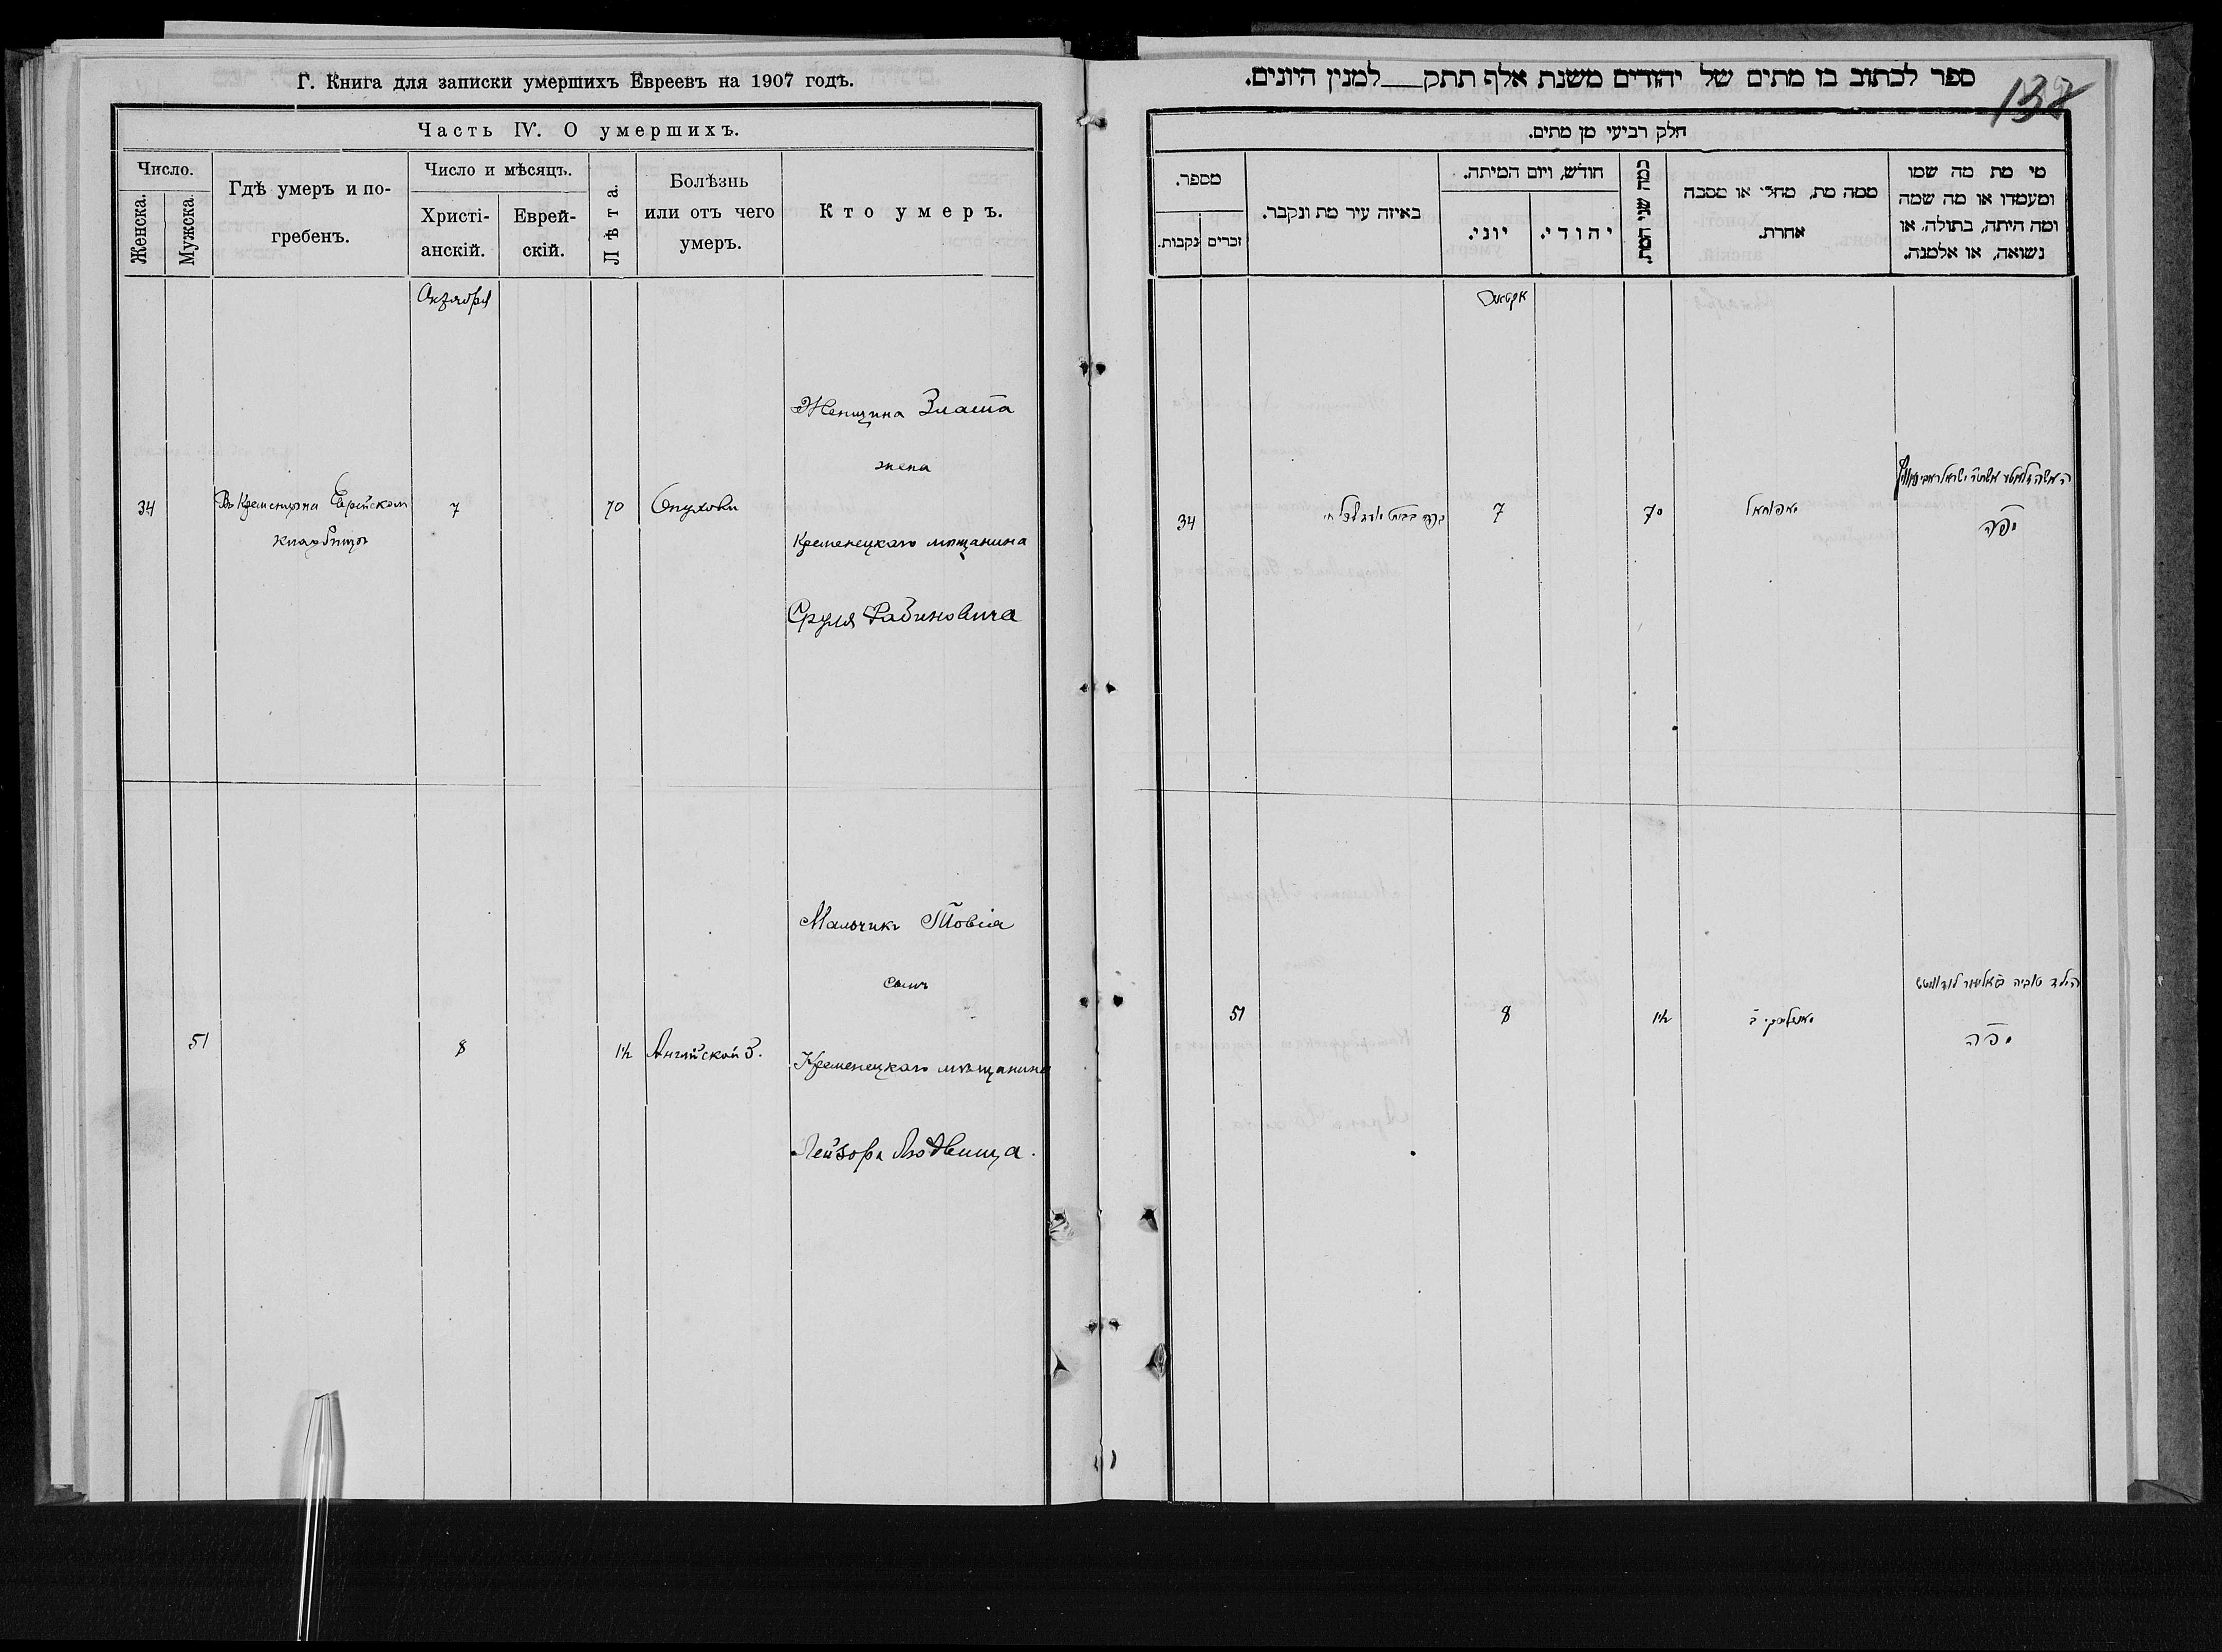 Г. Книга для записки умершихъ Евреевъ на 1907 годъ.
Часть IV. О умершихъ.
Число.
Женска.
Мужска.
Гдѣ умеръ и по-
гребенъ.
Число и мѣсяцъ.
Христі-
анскій.
Еврей-
скій.
Лѣта.
Болѣзнь
или отъ чего
умеръ.
Кто умеръ.
Октября
Женщина Злата
жена
34
Въ Кременцѣ на Еврейском
кладбищѣ
7
70
Опухоли
Кременецкаго мѣщанина
Сруля Рабиновича
Мальчикъ Товія
сынъ
51
8
1½
Англійской б.
Кременецкаго мѣщанина
Лейзора Людвища.
ספר לכתוב בו מתים של יהודים משנת אלף תתק למנין היונים.
138
חלק רביעי מן מתים.
מספר.
נקבות.
זכרים
באיזה עיר מת ונקבר.
חודש, ויום המיתה.
יוני.
יהודי.
כמה שני המת.
ממה מת, מחלי או מסבה
אחרת.
מי מת מה שמו
ומעמדו או מה שמה
ומה היתה, בתולה, או
נשואה, או אלמנה.
34
7
70
הילד טוביה
51
8
1½